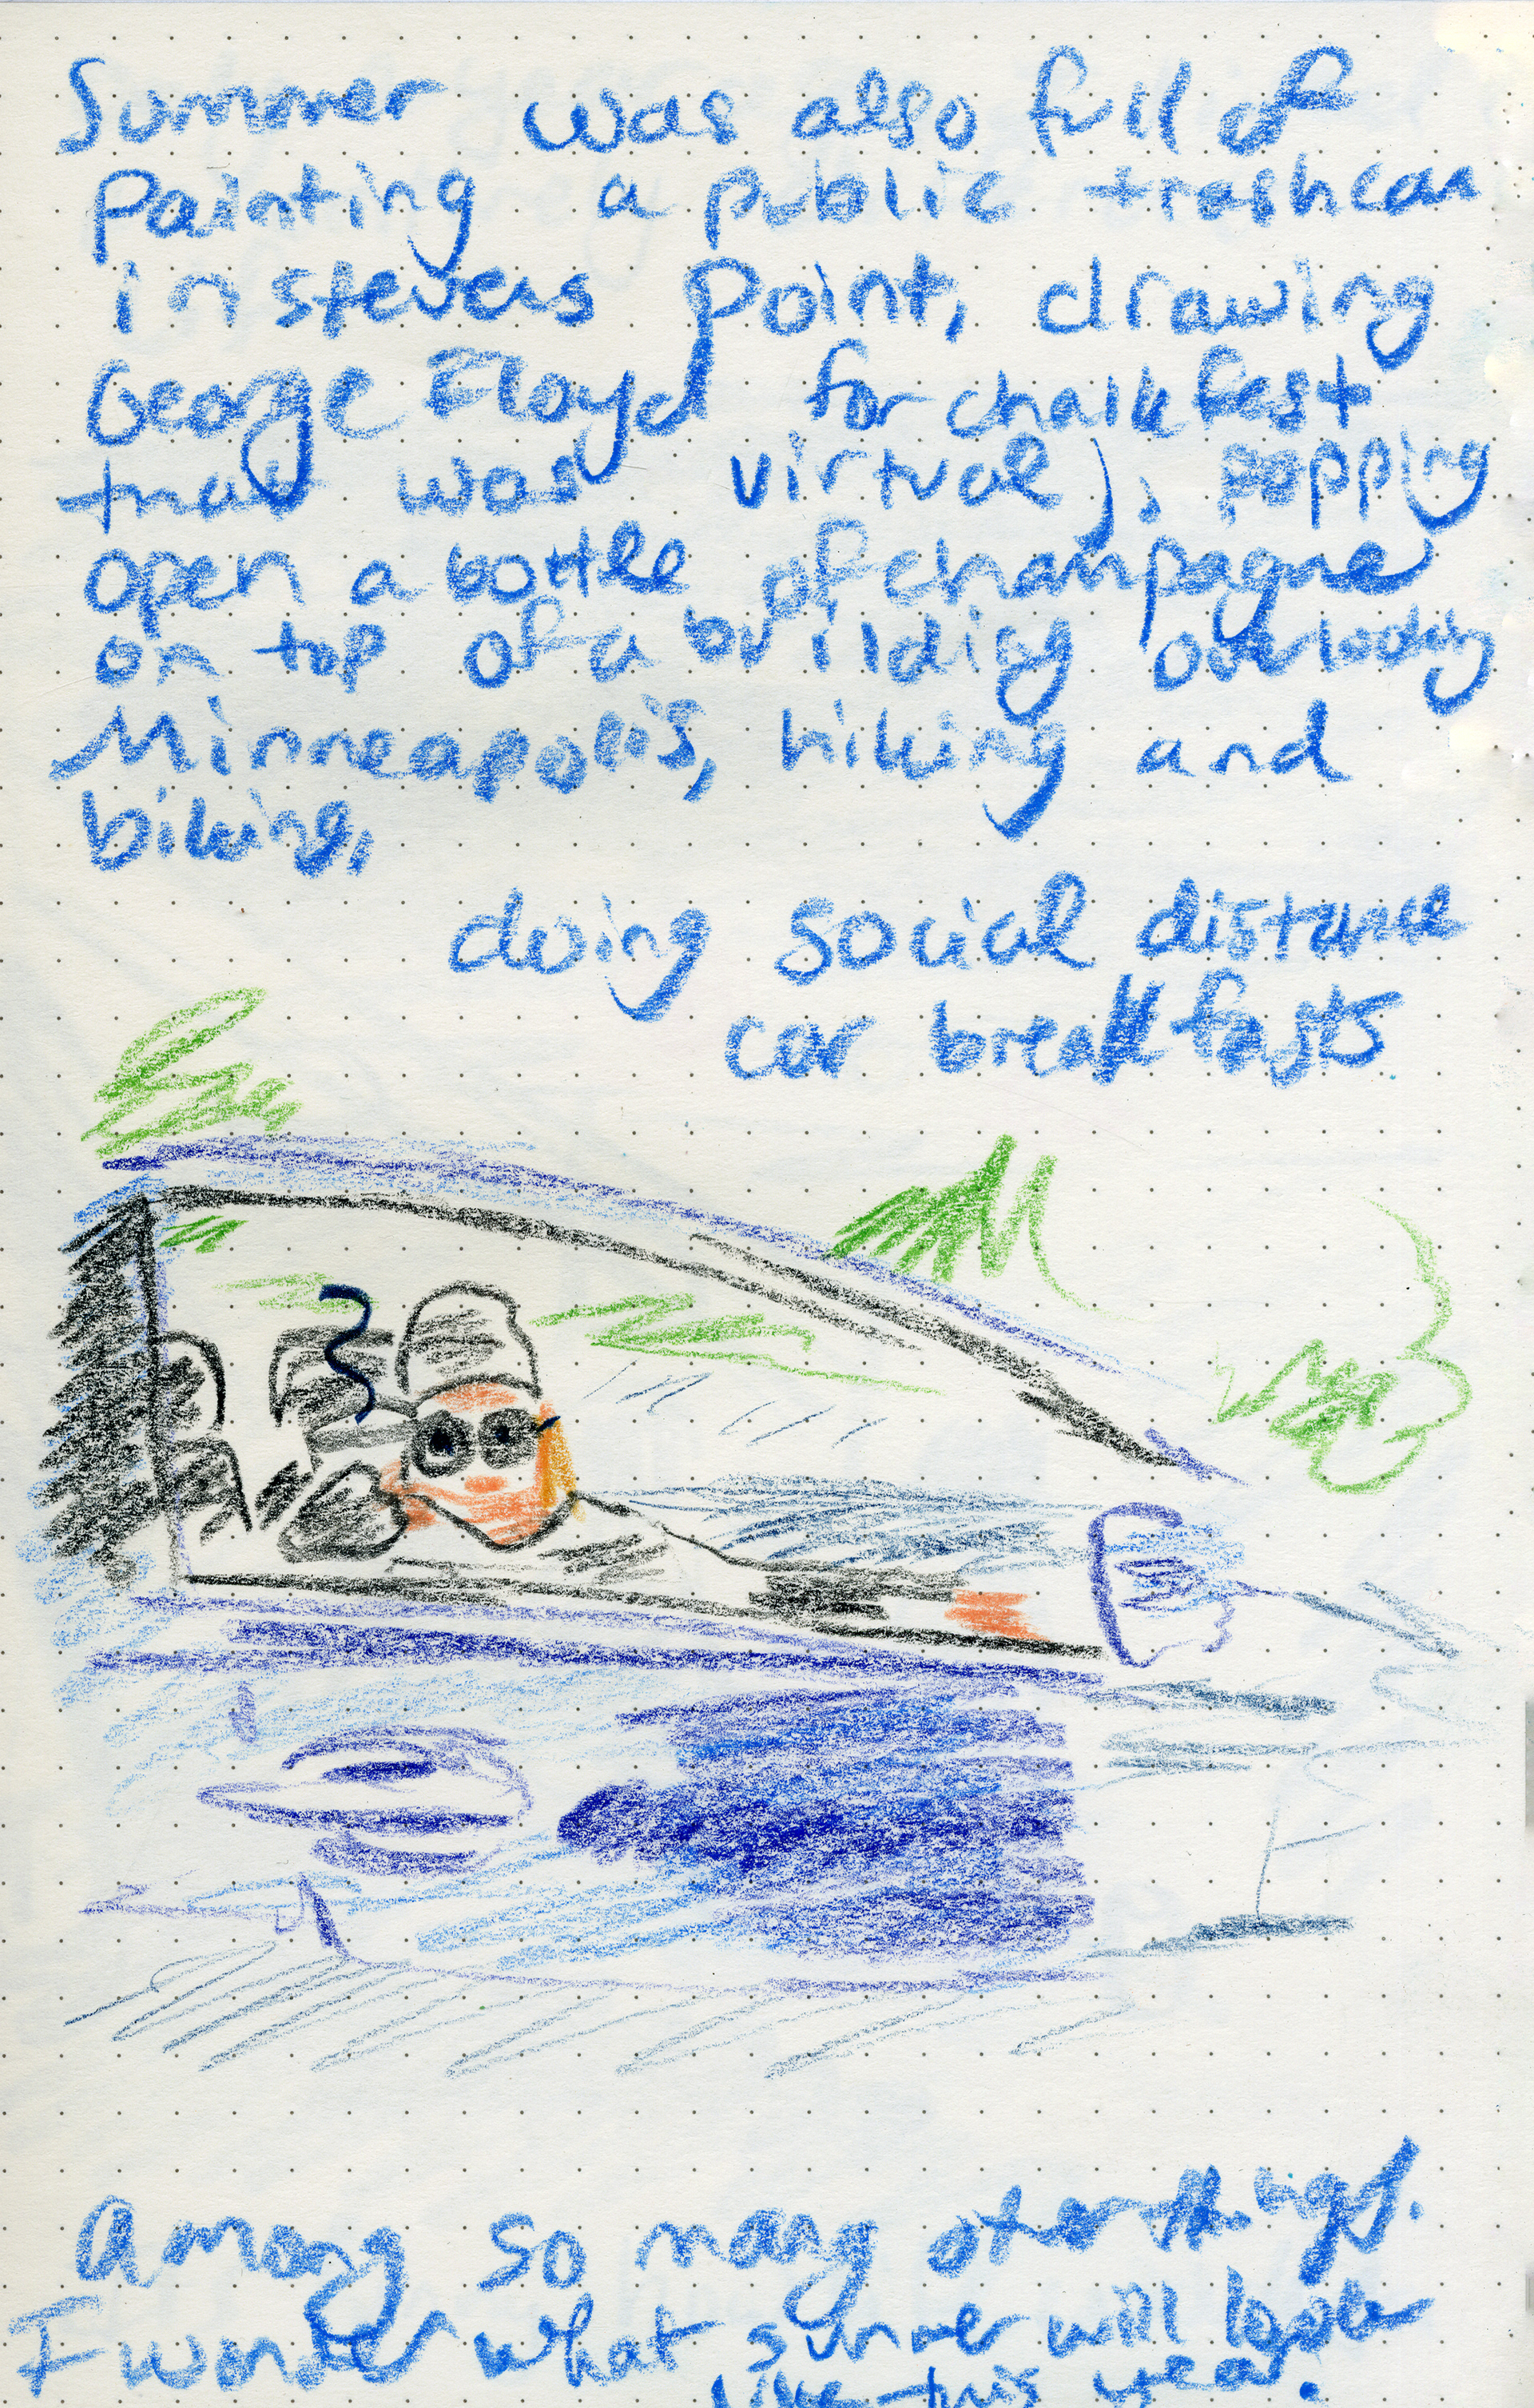 Summer was also full of
Painting a public trashcan
in stevens Point, drawing
George Floyd for chalkfest
that was virtual, popping
open a bottle of champagne
on top of a building overlooking
Minneapolis, hiking and
biking,
doing social distance
car breakfasts
Among so many other things.
I wonder what summer will look
like this year.